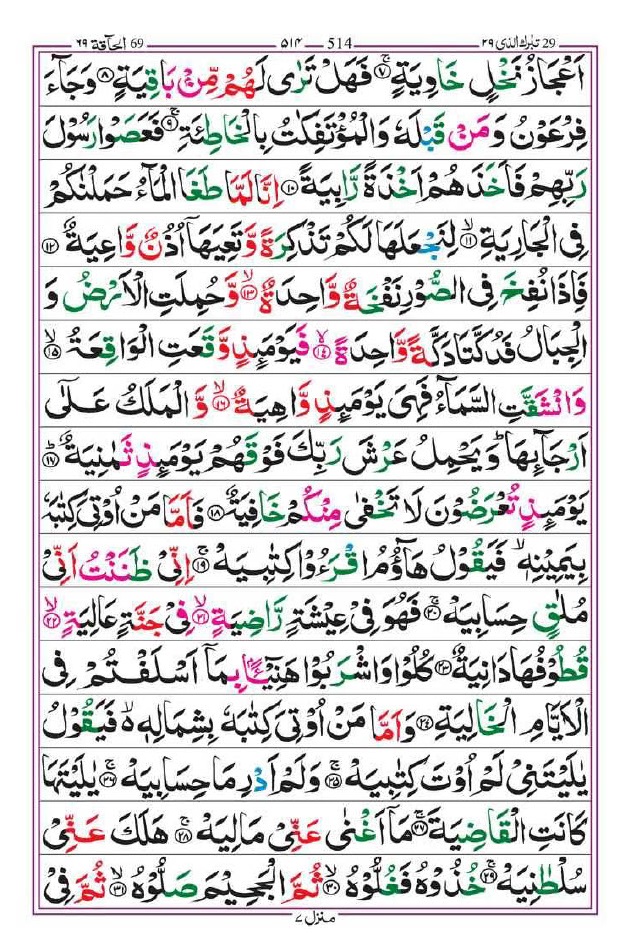 29 تبٰرك الذى ٢٩ 514 ٥١٤ 69 الحآقة ٦٩
اَعْجَازُ نَخْلٍ خَاوِيَةٍ ۚ﴿٧﴾ فَهَلْ تَرٰى لَهُمْ مِّنْۢ بَاقِيَةٍ ﴿٨﴾ وَجَآءَ
فِرْعَوْنُ وَمَنْ قَبْلَهٗ وَالْمُؤْتَفِكٰتُ بِالْخَاطِئَةِ ۚ﴿٩﴾ فَعَصَوْا رَسُوْلَ
رَبِّهِمْ فَاَخَذَهُمْ اَخْذَةً رَّابِيَةً ﴿١٠﴾ اِنَّا لَمَّا طَغَا الْمَآءُ حَمَلْنٰكُمْ
فِى الْجَارِيَةِ ۙ﴿١١﴾ لِنَجْعَلَهَا لَكُمْ تَذْكِرَةً وَّتَعِيَهَاۤ اُذُنٌ وَّاعِيَةٌ ﴿١٢﴾
فَاِذَا نُفِخَ فِى الصُّوْرِ نَفْخَةٌ وَّاحِدَةٌ ۙ﴿١٣﴾ وَّحُمِلَتِ الْاَرْضُ وَ
الْجِبَالُ فَدُكَّتَا دَكَّةً وَّاحِدَةً ۙ﴿١٤﴾ فَيَوْمَئِذٍ وَّقَعَتِ الْوَاقِعَةُ ۙ﴿١٥﴾
وَانْشَقَّتِ السَّمَآءُ فَهِىَ يَوْمَئِذٍ وَّاهِيَةٌ ۙ﴿١٦﴾ وَّالْمَلَكُ عَلٰٓى
اَرْجَآئِهَا ؕ وَيَحْمِلُ عَرْشَ رَبِّكَ فَوْقَهُمْ يَوْمَئِذٍ ثَمٰنِيَةٌ ؕ﴿١٧﴾
يَوْمَئِذٍ تُعْرَضُوْنَ لَا تَخْفٰى مِنْكُمْ خَافِيَةٌ ﴿١٨﴾ فَاَمَّا مَنْ اُوْتِىَ كِتٰبَهٗ
بِيَمِيْنِهٖ ۙ فَيَقُوْلُ هَآؤُمُ اقْرَءُوْا كِتٰبِيَهْ ۚ﴿١٩﴾ اِنِّىْ ظَنَنْتُ اَنِّىْ
مُلٰقٍ حِسَابِيَهْ ۚ﴿٢٠﴾ فَهُوَ فِىْ عِيْشَةٍ رَّاضِيَةٍ ۙ﴿٢١﴾ فِىْ جَنَّةٍ عَالِيَةٍ ۙ﴿٢٢﴾
قُطُوْفُهَا دَانِيَةٌ ﴿٢٣﴾ كُلُوْا وَاشْرَبُوْا هَنِيْٓئًۢا بِمَاۤ اَسْلَفْتُمْ فِى
الْاَيَّامِ الْخَالِيَةِ ﴿٢٤﴾ وَاَمَّا مَنْ اُوْتِىَ كِتٰبَهٗ بِشِمَالِهٖ ۙ فَيَقُوْلُ
يٰلَيْتَنِىْ لَمْ اُوْتَ كِتٰبِيَهْ ۚ﴿٢٥﴾ وَلَمْ اَدْرِ مَا حِسَابِيَهْ ۚ﴿٢٦﴾ يٰلَيْتَهَا
كَانَتِ الْقَاضِيَةَ ۚ﴿٢٧﴾ مَاۤ اَغْنٰى عَنِّىْ مَالِيَهْ ۚ﴿٢٨﴾ هَلَكَ عَنِّىْ
سُلْطٰنِيَهْ ۚ﴿٢٩﴾ خُذُوْهُ فَغُلُّوْهُ ۙ﴿٣٠﴾ ثُمَّ الْجَحِيْمَ صَلُّوْهُ ۙ﴿٣١﴾ ثُمَّ فِىْ
منزل ٧